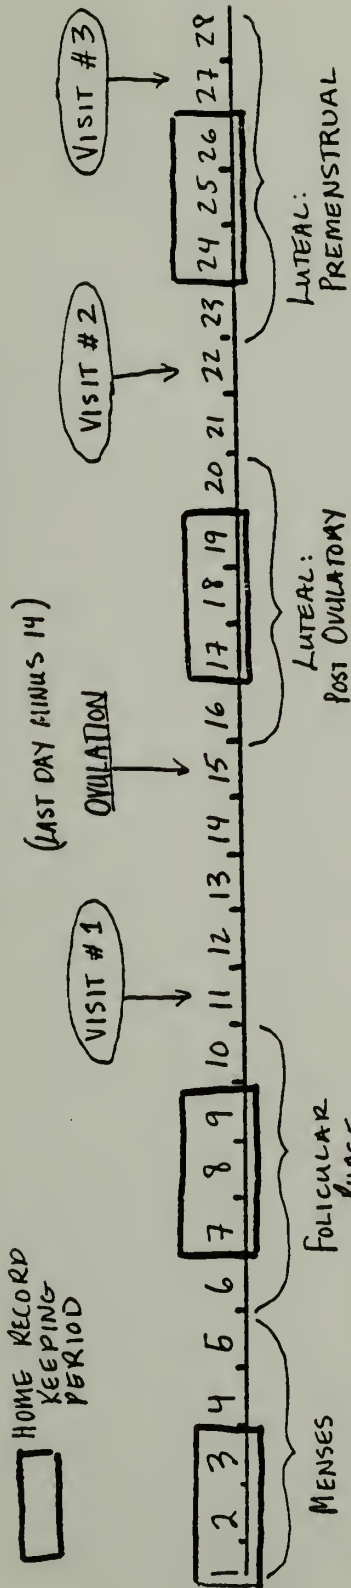 HOME RECORD
KEEPING
PERIOD
(LAST DAY MINUS 14)
VISIT #1
OVULATION
VISIT #2
VISIT #3
1 2 3 4 5 6 7 8 9 10 11 12 13 14 15 16 17 18 19 20 21 22 23 24 25 26 27 28
MENSES
FOLICULAR
LUTEAL:
POST OVULATORY
LUTEAL:
PREMENSTRUAL